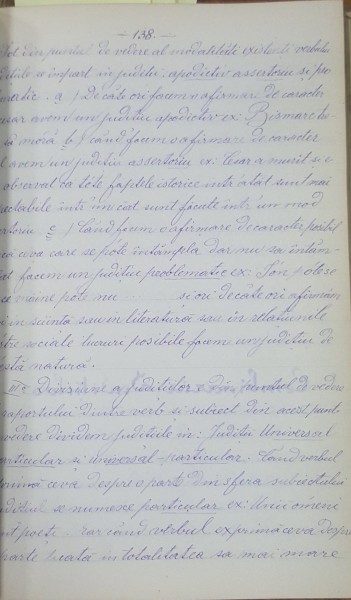 - 138. -
tot din puntul de vedere al modalităței existenței verbului
judițiile se împart în judiții: apodictiv assertoriu și pro
matic. a) Decâte ori facem o afirmare de caracter
avem un judițiu apodictiv ex: Bismarc
să moră b) când facem o afirmare de caracter
l avem un judițiu assertoriu ex: Cezar a murit și
observat ca tóte faptele istorice într'atât sunt mai
ctabile într'un cat sunt făcute într'un mod
toriu c) Când facem o afirmare de caracter posibil
ca ceva care se póte întâmpla dar nu sa întâm
lat facem un judițiu problematic ex:
ce mâine póte nu și ori de câte ori afirmăm
în sciința sau în literatură sau în relațiunile
stre sociale lucruri posibile facem un judițiu de
astă natură.
III Divisiune a judițiilor e din puntul de vedere
raportului dintre verb și subiect din acest punt
vedere dividem judițiile în: Judiții Universal
particular și universal-particular. Când verbul
primă ceva despre o parte din sfera subiectului
judițiul se numesce particular ex: Unii ómeni
nt poeți. Iar când verbul exprimă ceva despre
parte luată în totalitatea sa mai mare